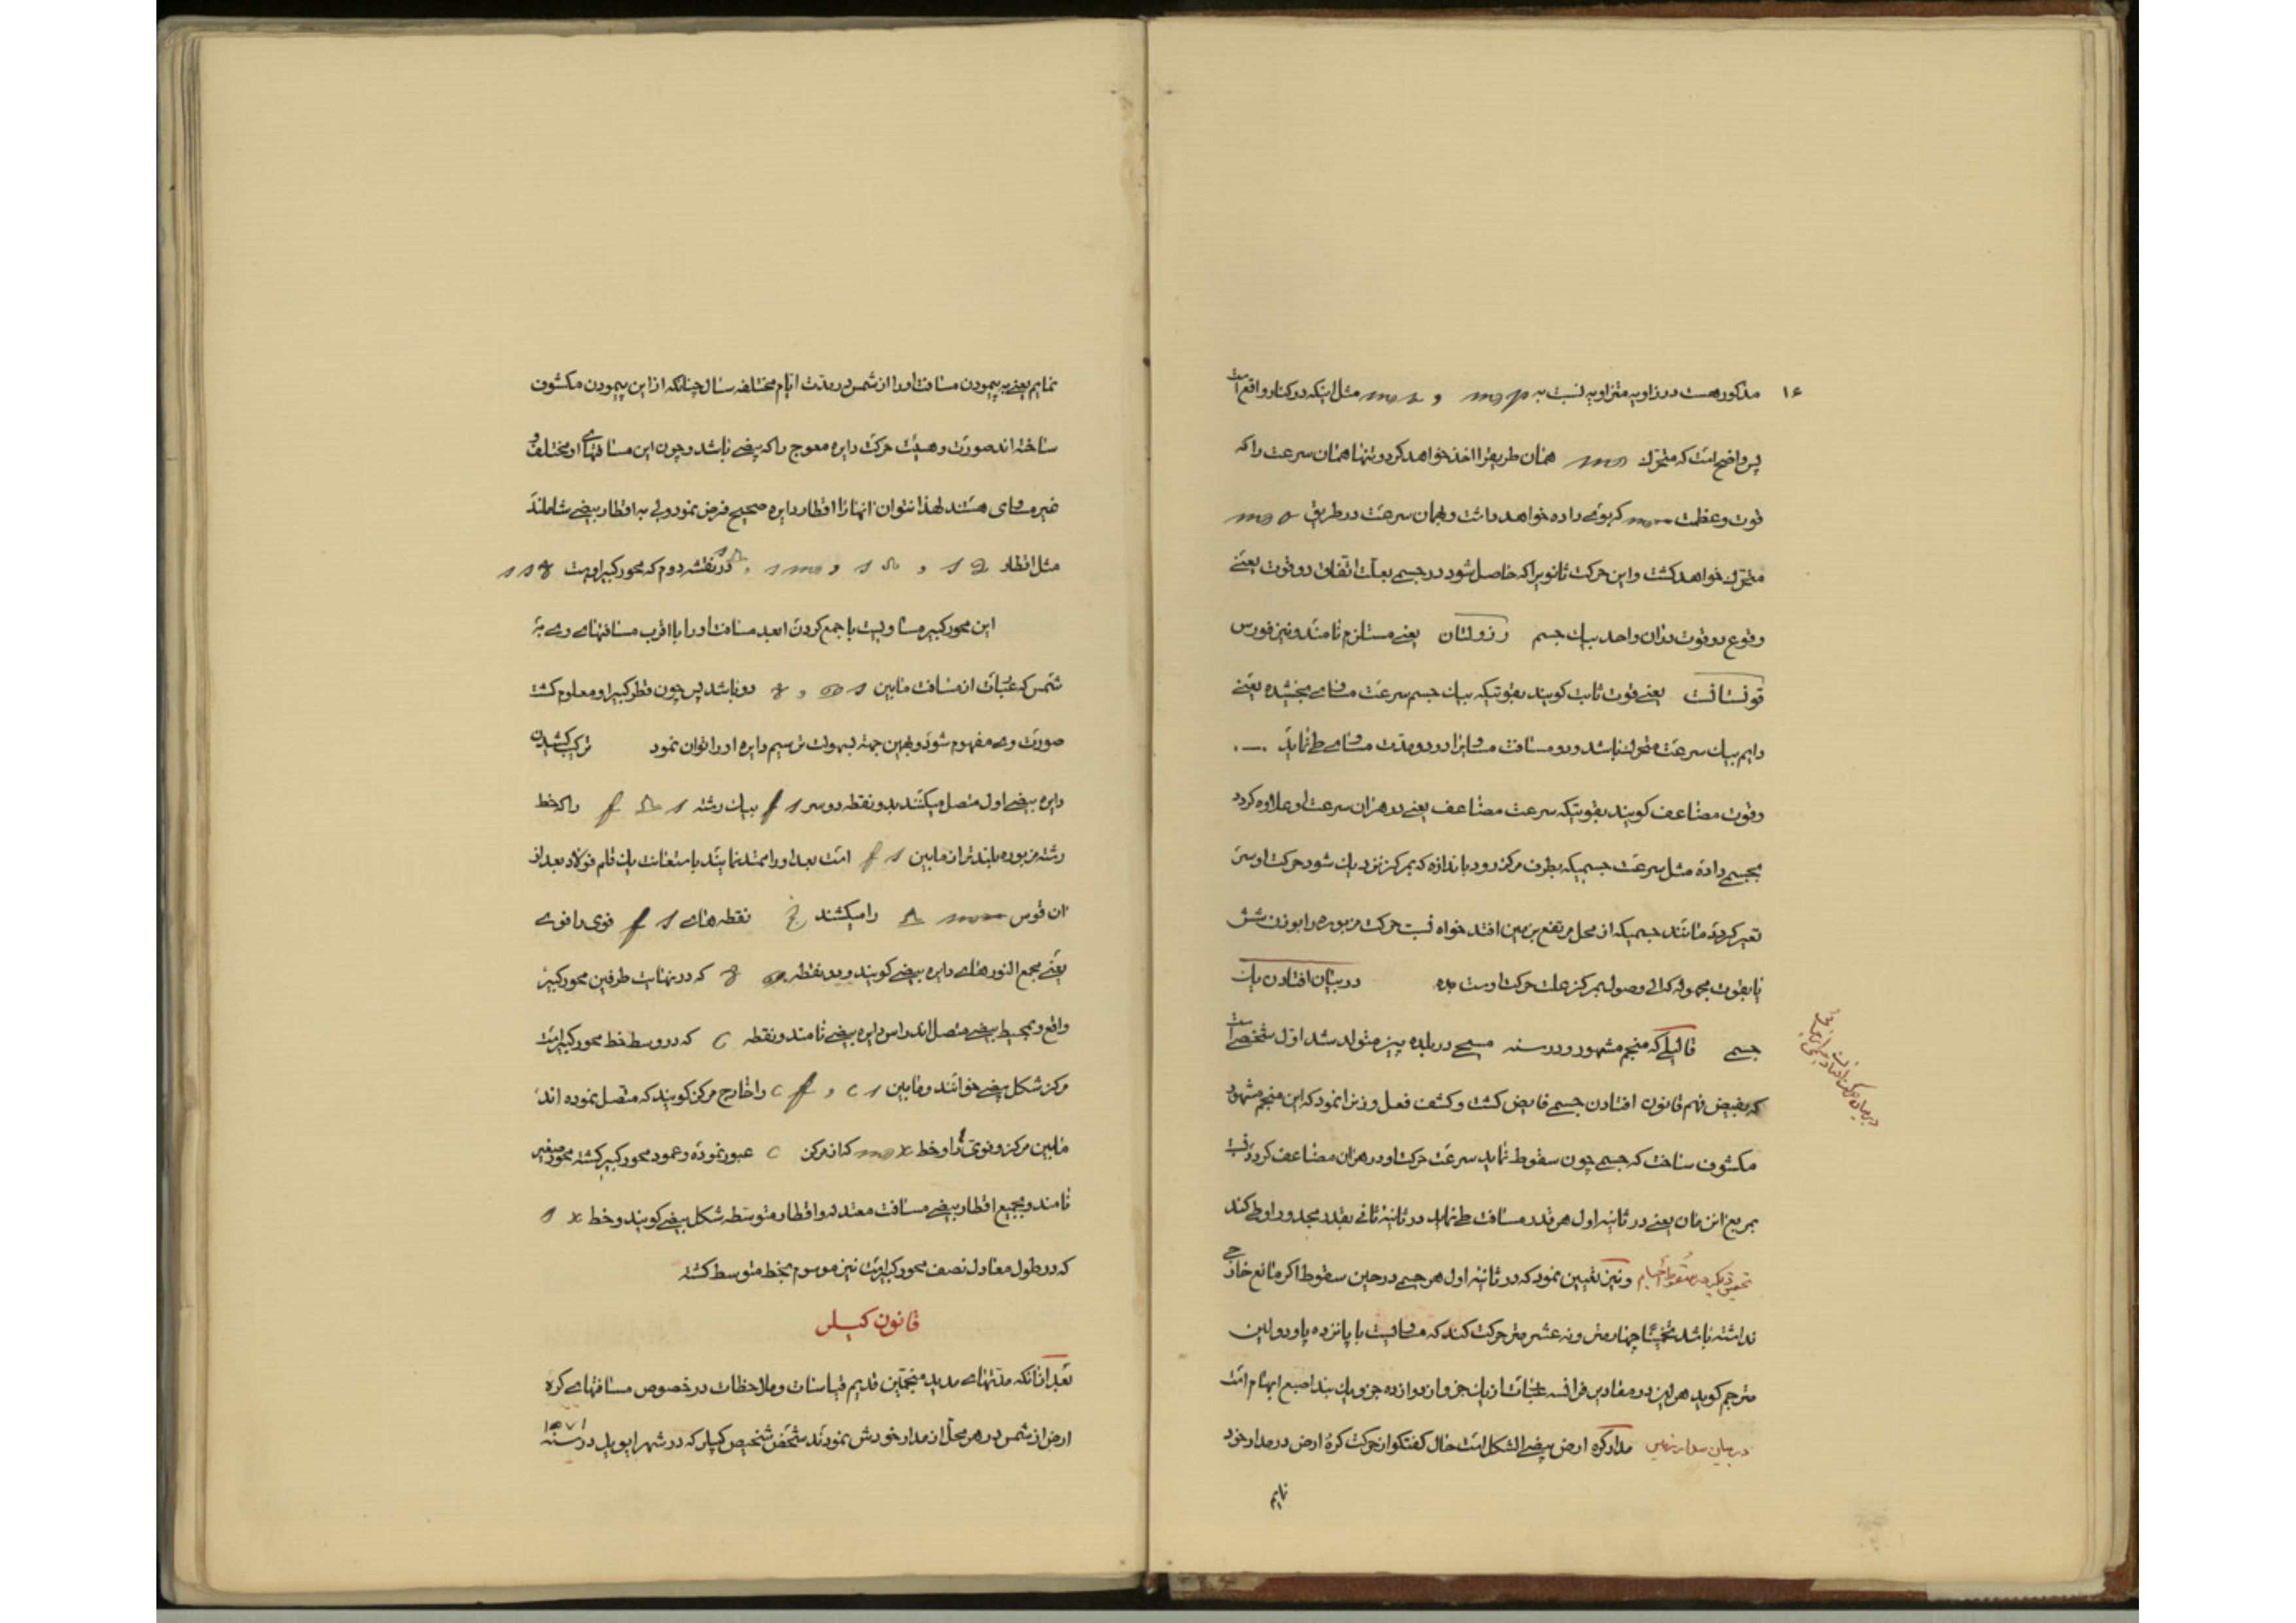 ۱۶
مذکور هست در زاویه متزاویه نسبت به mp و ms مثل اینکه در کنار واقع است
پس واضح است که متحرک m همان طریق را اخذ خواهد کرد و تنها همان سرعت را که
قوت و عظمت m کربوی داده خواهد داشت و بهمان سرعت در طریق mo
متحرک خواهد کشت و این حرکت ثانویرا که حاصل شود در جسم بعلت اتفاق دو قوت یعنی
وقوع دو قوت در آن واحد بیک جسم رزولتان یعنی مستلزم نامند و نیز فورس
قونستانت یعنی قوت ثابت کویند بقوتیکه بیک جسم سرعت مساوی بخشده یعنی
دایم بیک سرعت متحرک باشد و دو مسافت مساویرا در دو مدت مساوی طی نماید
و قوت مضاعف کویند بقوتیکه سرعت مضاعف یعنی در هر آن سرعت او علاوه کردد
بجسمی داده مثل سرعت جسمیکه بطرف مرکز رود باندازه که بمرکز نزدیک شود حرکت او سریع
تغیر کردد مانند جسمیکه از محل مرتفع بزمین افتد خواه نسبت حرکت مزبوره را بوزن شئ
یا بقوت مجموله که الی وصول بمرکز علت حرکت اوست بده در بیان افتادن یک
جسمی قالیلی که منجم مشهور و در سنه مسیحی در بلده پیزه متولد شد اول شخصی است
که بفیض فهم قانون افتادن جسمی فایض کشت و کشف فعل وزنرا نمود که این منجم مشهور
مکشوف ساخت که جسمی چون سقوط نماید سرعت حرکت او در هر آن مضاعف کردد نسبت
بمربع ان زمان یعنی در ثانیه اول هر قدر مسافت طی نماید در ثانیه ثانی بقدر مجذور او طی کند
تحقیق دیکر در سقوط اجسام و نیز تعیین نمود که در ثانیه اول هر جسمی در حین سقوط اکر مانع خارجی
نداشته باشد تخمینا چهار متر و نه عشر متر حرکت کند که مساویست با پانزده پا و دو لین
مترجم کوید هر لین در مقادیر فرانسه عبارت از یک جزو از دوازده جزو یک بند اصبع ابهام است
در بیان مدار زمین مدار کره ارض بیضی الشکل است حال کفتکو از حرکت کره ارض در مدار خود
نمایم
نمایم یعنی به پیمودن مسافت او را از شمس در مدت ایام مختلفه سال چنانکه از این پیمودن مکشوف
ساخته اند صورت و هیئت حرکت دایره معوج را که بیضی باشد و چون این مسافتهای او مختلف و
غیر مساوی هستند لهذا نتوان آنها را اقطار دایره صحیح فرض نمود ولی به اقطار بیضی شاملند
مثل اقطار s a و s n و s m و در نقشه دوم که محور کبیر اوست
این محور کبیر مساویست با جمع کردن ابعد مسافت او را با اقرب مسافتهای وی به
شمس که عبارت از مسافت مابین s و دو باشد پس چون قطر کبیر او معلوم کشت
صورت وی مفهوم شود و بهمین جهة بسهولت ترسیم دایره او را توان نمود ترکیب کشیدن
دایره بیضی اول متصل میکنند بدو نقطه دو سر s f بیک رشته f n s را که خط
رشته مزبوره بلندتر از مابین s f است بعد او را ممتد نمایند باستعانت یک قلم فولاد بعد از
ان قوس m را میکشند نقطه های s f فوی را فوی
یعنی مجمع النور های دایره بیضی کویند و دو نقطه که در نهایت طرفین محور کبیر
واقع و بمحیط بیضی متصل اند راس دایره بیضی نامند و نقطه c که در وسط خط محور کبیر است
مرکز شکل بیضی خوانند و مابین c s و c f را خارج مرکز کویند که متصل نموده اند
مابین مرکز و فوی را و خط m x که از مرکز c عبور نموده و عمود محور کبیر کشته محور صغیر
نامند و بجمیع اقطار بیضی مسافت معتدله و اقطار متوسطه شکل بیضی کویند و خط s x
که در طول معادل نصف محور کبیر است نیز موسوم بخط متوسط کشته
قانون کپلر
بعد از آنکه مدتهای مدید منجمین قدیم قیاسات و ملاحظات در خصوص مسافتهای کره
ارض از شمس در هر محل از مدار خودش نمودند شخص شخیص کپلر که در شهر ایویل در سنه ۱۵۷۱